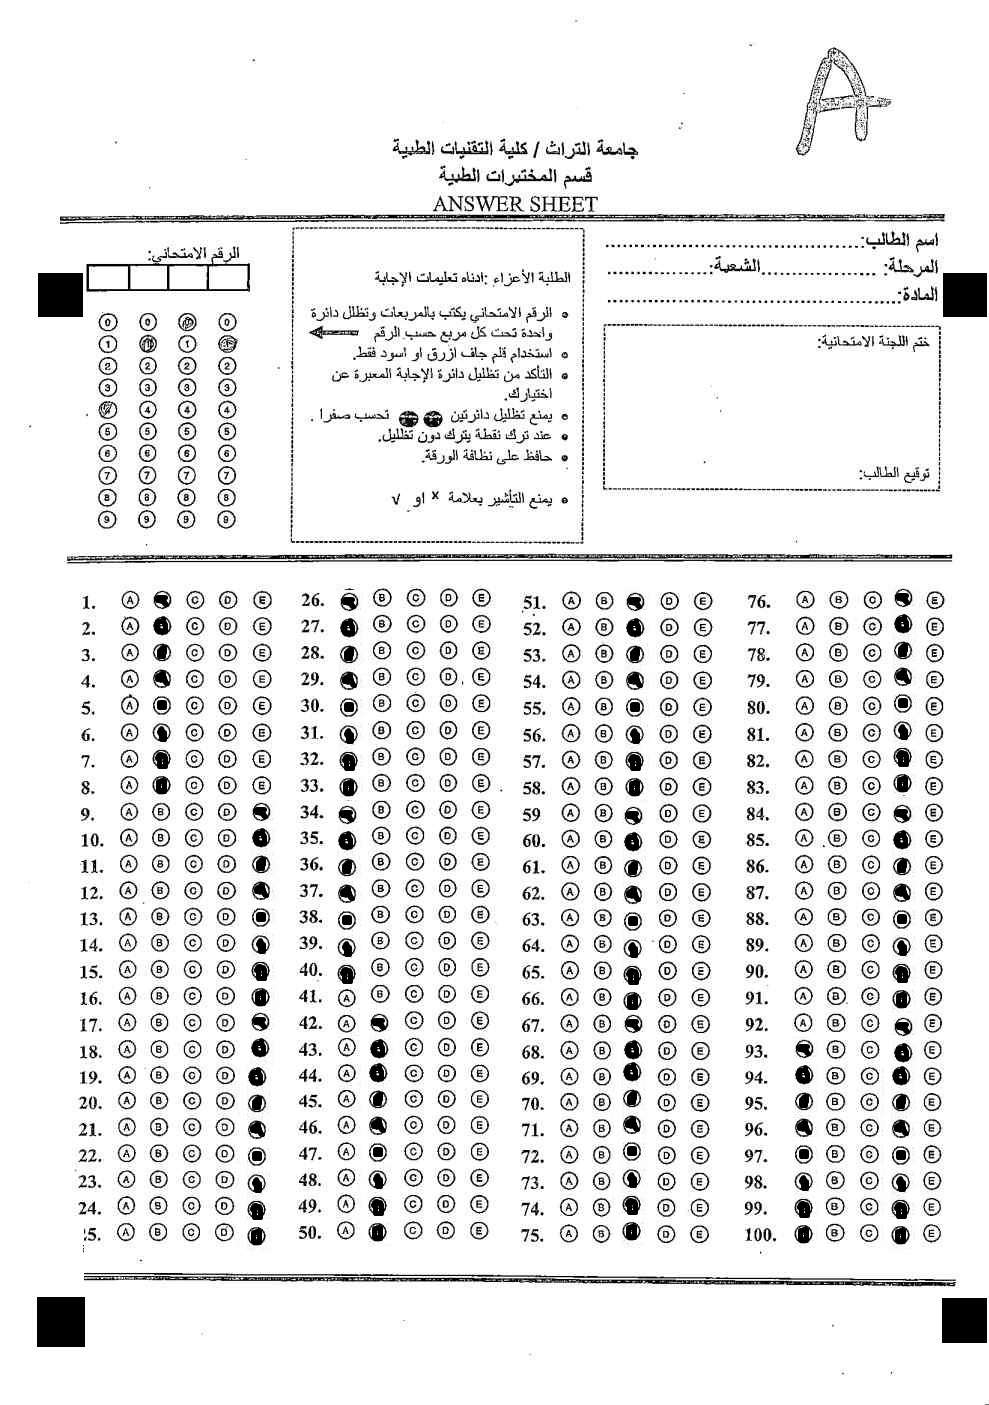 A
جامعة التراث / كلية التقنيات الطبية
قسم المختبرات الطبية
ANSWER SHEET
اسم الطالب:
المرحلة: الشعبة:
المادة:
ختم اللجنة الامتحانية:
توقيع الطالب:
الطلبة الأعزاء :ادناه تعليمات الإجابة
الرقم الامتحاني يكتب بالمربعات وتظلل دائرة
واحدة تحت كل مربع حسب الرقم
استخدام قلم جاف ازرق او اسود فقط.
التأكد من تظليل دائرة الإجابة المعبرة عن
اختيارك.
يمنع تظليل دائرتين تحسب صفرا .
عند ترك نقطة يترك دون تظليل.
حافظ على نظافة الورقة.
يمنع التأشير بعلامة x او √
الرقم الامتحاني:
0 0 0
1 1
2 2 2 2
3 3 3 3
4 4 4
5 5 5 5
6 6 6 6
7 7 7 7
8 8 8 8
9 9 9 9
1. A C D E
2. A C D E
3. A C D E
4. A C D E
5. A C D E
6. A C D E
7. A C D E
8. A C D E
9. A B C D
10. A B C D
11. A B C D
12. A B C D
13. A B C D
14. A B C D
15. A B C D
16. A B C D
17. A B C D
18. A B C D
19. A B C D
20. A B C D
21. A B C D
22. A B C D
23. A B C D
24. A B C D
5. A B C D
26. B C D E
27. B C D E
28. B C D E
29. B C D E
30. B C D E
31. B C D E
32. B C D E
33. B C D E
34. B C D E
35. B C D E
36. B C D E
37. B C D E
38. B C D E
39. B C D E
40. B C D E
41. A B C D E
42. A C D E
43. A C D E
44. A C D E
45. A C D E
46. A C D E
47. A C D E
48. A C D E
49. A C D E
50. A C D E
51. A B D E
52. A B D E
53. A B D E
54. A B D E
55. A B D E
56. A B D E
57. A B D E
58. A B D E
59 A B D E
60. A B D E
61. A B D E
62. A B D E
63. A B D E
64. A B D E
65. A B D E
66. A B D E
67. A B D E
68. A B D E
69. A B D E
70. A B D E
71. A B D E
72. A B D E
73. A B D E
74. A B D E
75. A B D E
76. A B C E
77. A B C E
78. A B C E
79. A B C E
80. A B C E
81. A B C E
82. A B C E
83. A B C E
84. A B C E
85. A B C E
86. A B C E
87. A B C E
88. A B C E
89. A B C E
90. A B C E
91. A B C E
92. A B C E
93. B C E
94. B C E
95. B C E
96. B C E
97. B C E
98. B C E
99. B C E
100. B C E